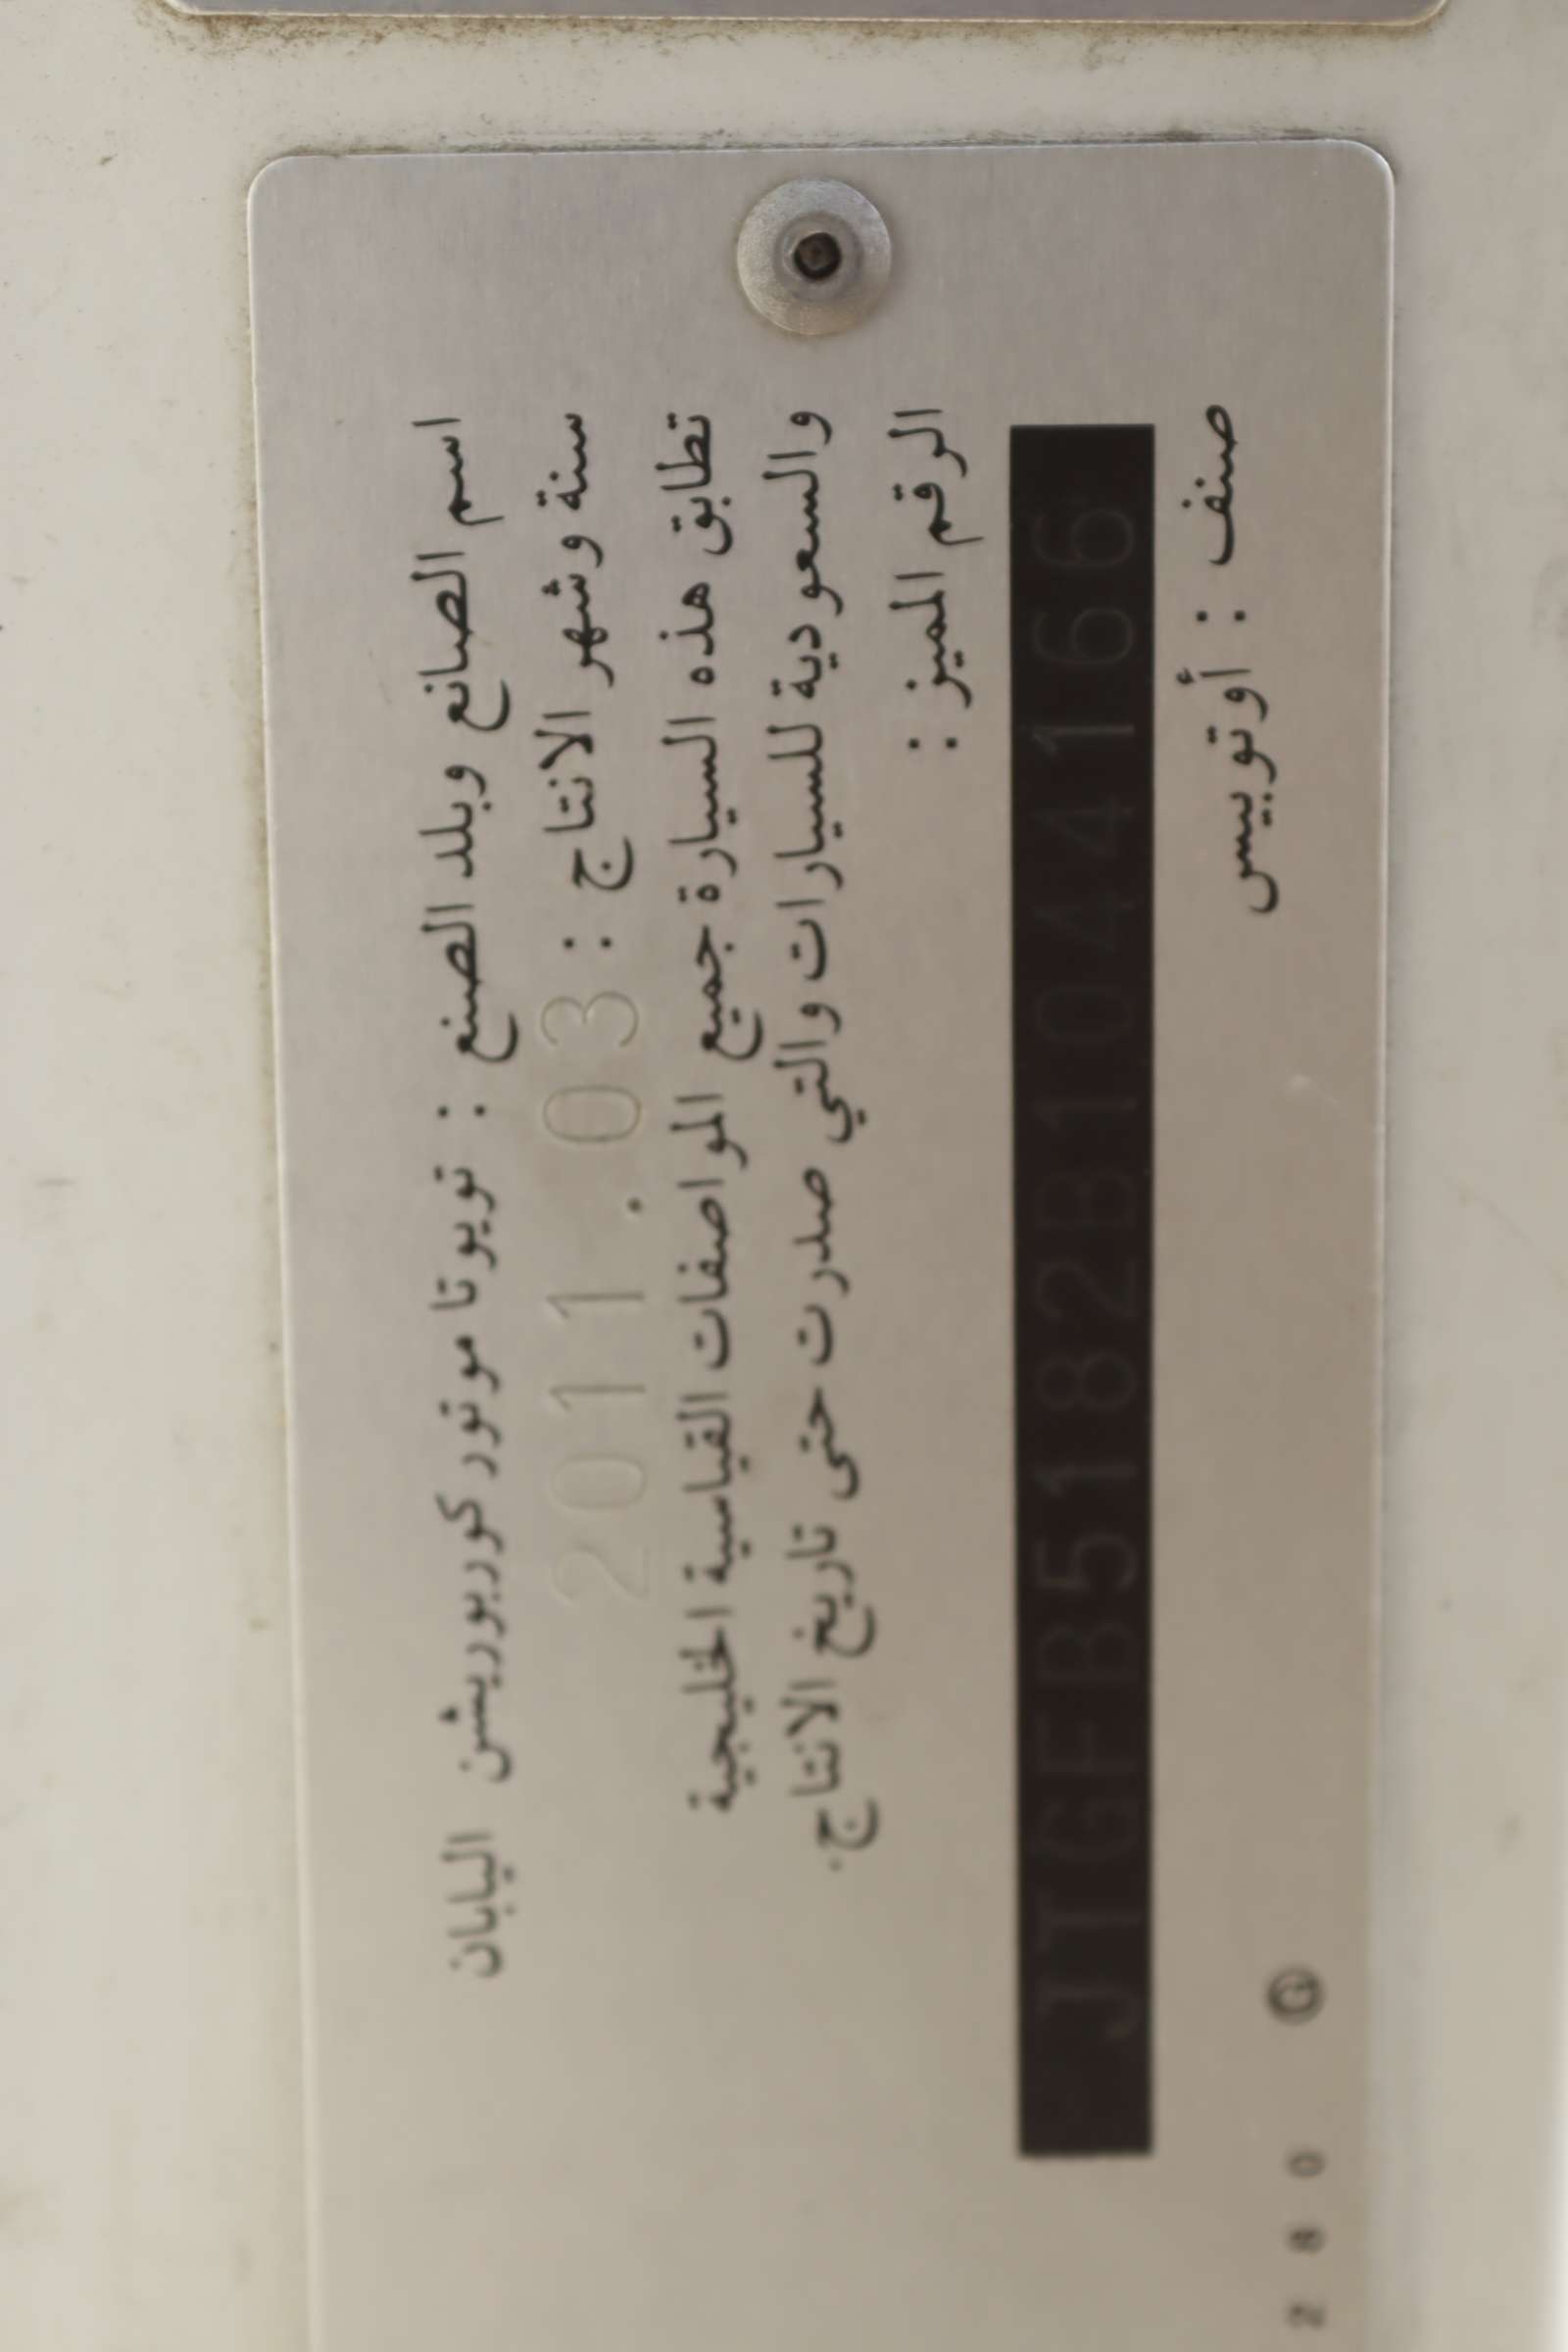 اسم الصانع وبلد الصنع : تويوتا موتور كوربوريشن اليابان
سنة وشهر الانتاج : 2011.03
تطابق هذه السيارة جميع المواصفات القياسية الخليجية
والسعودية للسيارات والتي صدرت حتى تاريخ الانتاج.
الرقم المميز :
JTGFB5182B1044166
صنف : أوتوبيس